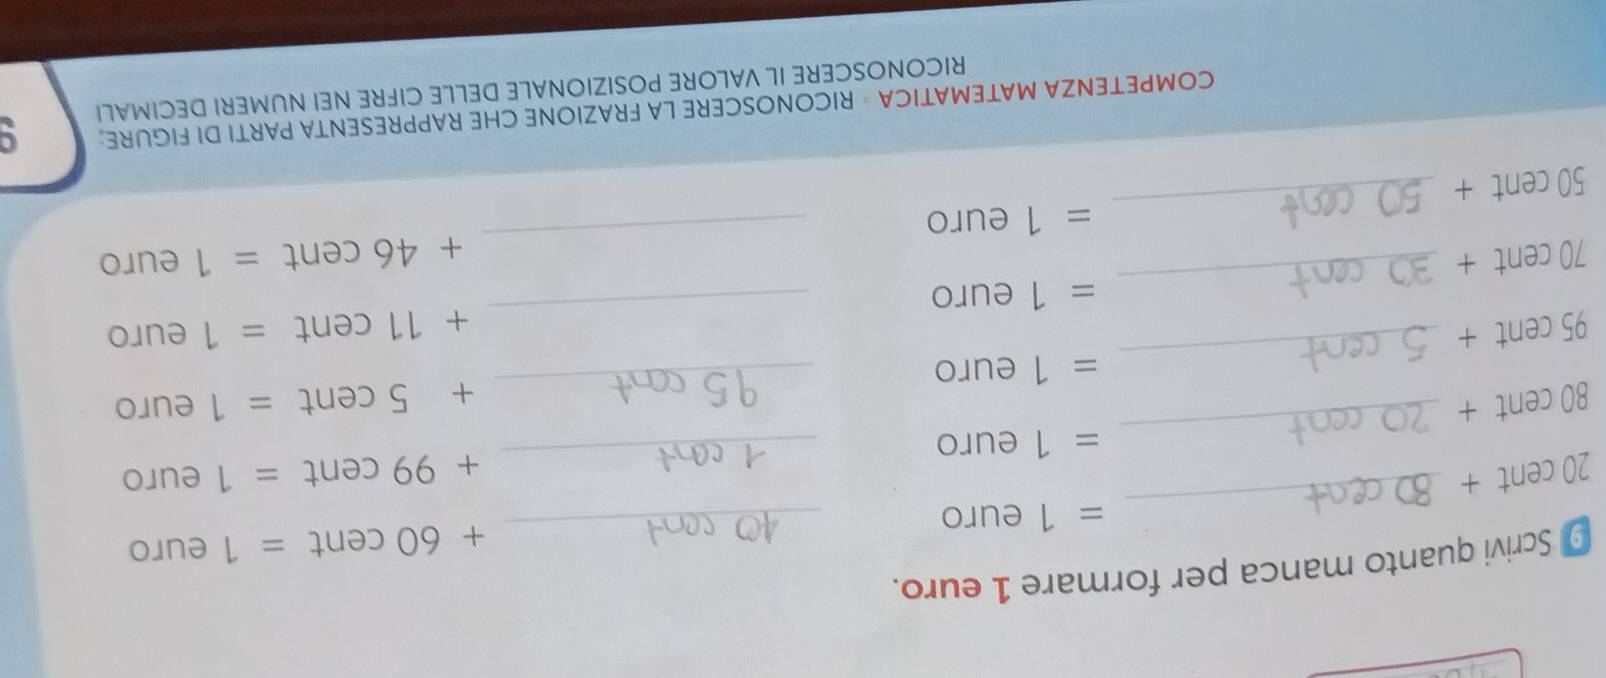 9 Scrivi quanto manca per formare 1 euro.
20 cent + 80 cent = 1 euro
80 cent + 20 cent = 1 euro
95 cent + 5 cent = 1 euro
70 cent + 30 cent = 1 euro
50 cent + 50 cent = 1 euro
40 cent + 60 cent = 1 euro
1 cent + 99 cent = 1 euro
95 cent + 5 cent = 1 euro
+ 11 cent = 1 euro
+ 46 cent = 1 euro
COMPETENZA MATEMATICA • RICONOSCERE LA FRAZIONE CHE RAPPRESENTA PARTI DI FIGURE;
RICONOSCERE IL VALORE POSIZIONALE DELLE CIFRE NEI NUMERI DECIMALI